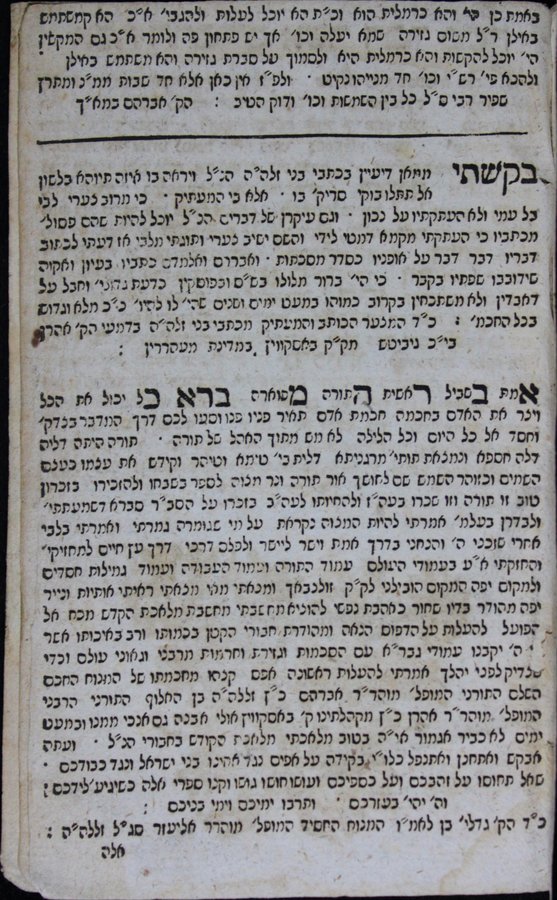 באמת כן פי' והא כרמלית הוא וכ"ת הא יוכל לעלות ולהגבי' א"כ הא קמשתמש
באילן ר"ל משום גזירה שמא יעלה וכו' אך יש פתחון פה ולומר א"כ גם המקשין
הי' יוכל להקשות והא כרמלית היא ולסמוך על סברת גזירה והא משתמש באילן
ולהכא פי' רש"י וכו' חד מנייהו נקיט · ולפ"ז אין כאן אלא חד שבות ממ"נ ומתרץ
שפיר רבי ס"ל כל בין השמשות וכו' ודוק הטיב : הק' אברהם במא"ך
בקשתי מתאן דיעיין בכתבי בני זלה"ה הנ"ל ויראה בו איזה תיוהא בלשון
אל תתלו בוקי סריק' בו · אלא בי המעתיק · כי מרוב צערי לבי
בל עמי ולא העתקתיו על נכון · וגם עיקרן של דברים הנ"ל יוכל להיות שהם פסול'
מכתביו כי העתקתי מקמא דמטי לידי והשם ישיב צערי ותוגתי מלבי אז דעתי לכתוב
דבריו דבר דבר על אופניו כסדר מסכתות · ואבררם ואלמדם כתביו בעיון ואקוה
שידובבו שפתיו בקבר · כי הי' ברור מלולו בש"ס ובפוסקין כדעת גדולי' וחבל על
דאבדין ולא משתכחין בקרוב כמוהו במעט ימים ושנים שהי' לו להיו' כ"כ מלא וגדוש
בכל החכמ' : כ"ד המצער הכותב והמעתיק מכתבי בני זלה"ה בדמעי הק' אהרן
בי"כ ניכטש מק"ק באסקווין במדינת מעהררין :
אמת בשביל ראשית התורה מפוארה ברא כל יכול את הכל
ויצר את האדם בחכמה חכמת אדם תאיר פניו פנו וסעו לכם דרך המדבר בצדק'
וחסד אל כל היום וכל הלילה לא מש מתוך האהל של תורה · תורה היתה דליה
דלה חספא ומצאת תותי' מרגניתא דלית בי' טימא וטיהר וקידש את עצמו כעצם
השמים וכזוהר השמש שם לחושך אור תורה ונר מצוה לספר בשבחו ולהזכירו בזכרון
טוב זו תורה וזו שכרו בעה"ז ולהחיותו לעה"ב בזכרו על הסב"ר סברא דשמעתתי'
ולבדרן בעלמ' אמרתי להיות המצוה נקראת על מי שגומרה גמרתי ואמרתי בלבי
אחרי שזכני ה' והנחני בדרך אמת וישר ליישר ולפלס דרכי דרך עץ חיים למחזיקי'
והחזקתי א"ע בעמודי העולם עמוד התורה ועמוד העבודה ועמוד גמילות חסדים
ולמקום יפה המקום הובילני לק"ק זולצבאך ומצאתי מה' מצאתי ראיתי אותיות ונייר
יפה מהודר בדיו שחור כאהבת נפשי להוציא מחשבתי מחשבת מלאכת הקדש מכח אל
הפועל להעלות על הדפוס הנאה ומהודרת חבורי הקטן בכמותו ורב באיכותו אשר
ה' יקבנו עמודי גבר"א עם הסכמות וגזירת וחרמות מרבני וגאוני עולם וכדי
שצדיק לפני יהלך אמרתי להעלות ראשונה אפס קצהו מחכמתו של המנוח החכם
השלם התורני המופל' מוהר"ר אברהם כ"ץ זללה"ה בן האלוף התורני הרבני
המופל' מוהר"ר אהרן כ"ץ מקהלתינו ק' באסקווין אולי אבנה גם אנכי ממנו וכמעט
ימים לא כביר אגמור אי"ה בטוב מלאכתי מלאכת הקודש בחבורי הנ"ל · ועתה
אבקש ואתחנן ואתנפל כלו"י בקידה על אפים נגד אחינו בני ישראל ונגד כבודכם ·
שאל תחוסו על זהבכם ועל כספיכם ועושו חושו גושו וקנו ספרי אלה כשיגיע לידכם :
וה' יהי' בעזרכם · ותרבו ימיכם וימי בניכם :
כ"ד הק' גדלי' בן לאמ"ו המנוח החסיד המופל' מוהרר אליעזר סג"ל זללה"ה :
אלה